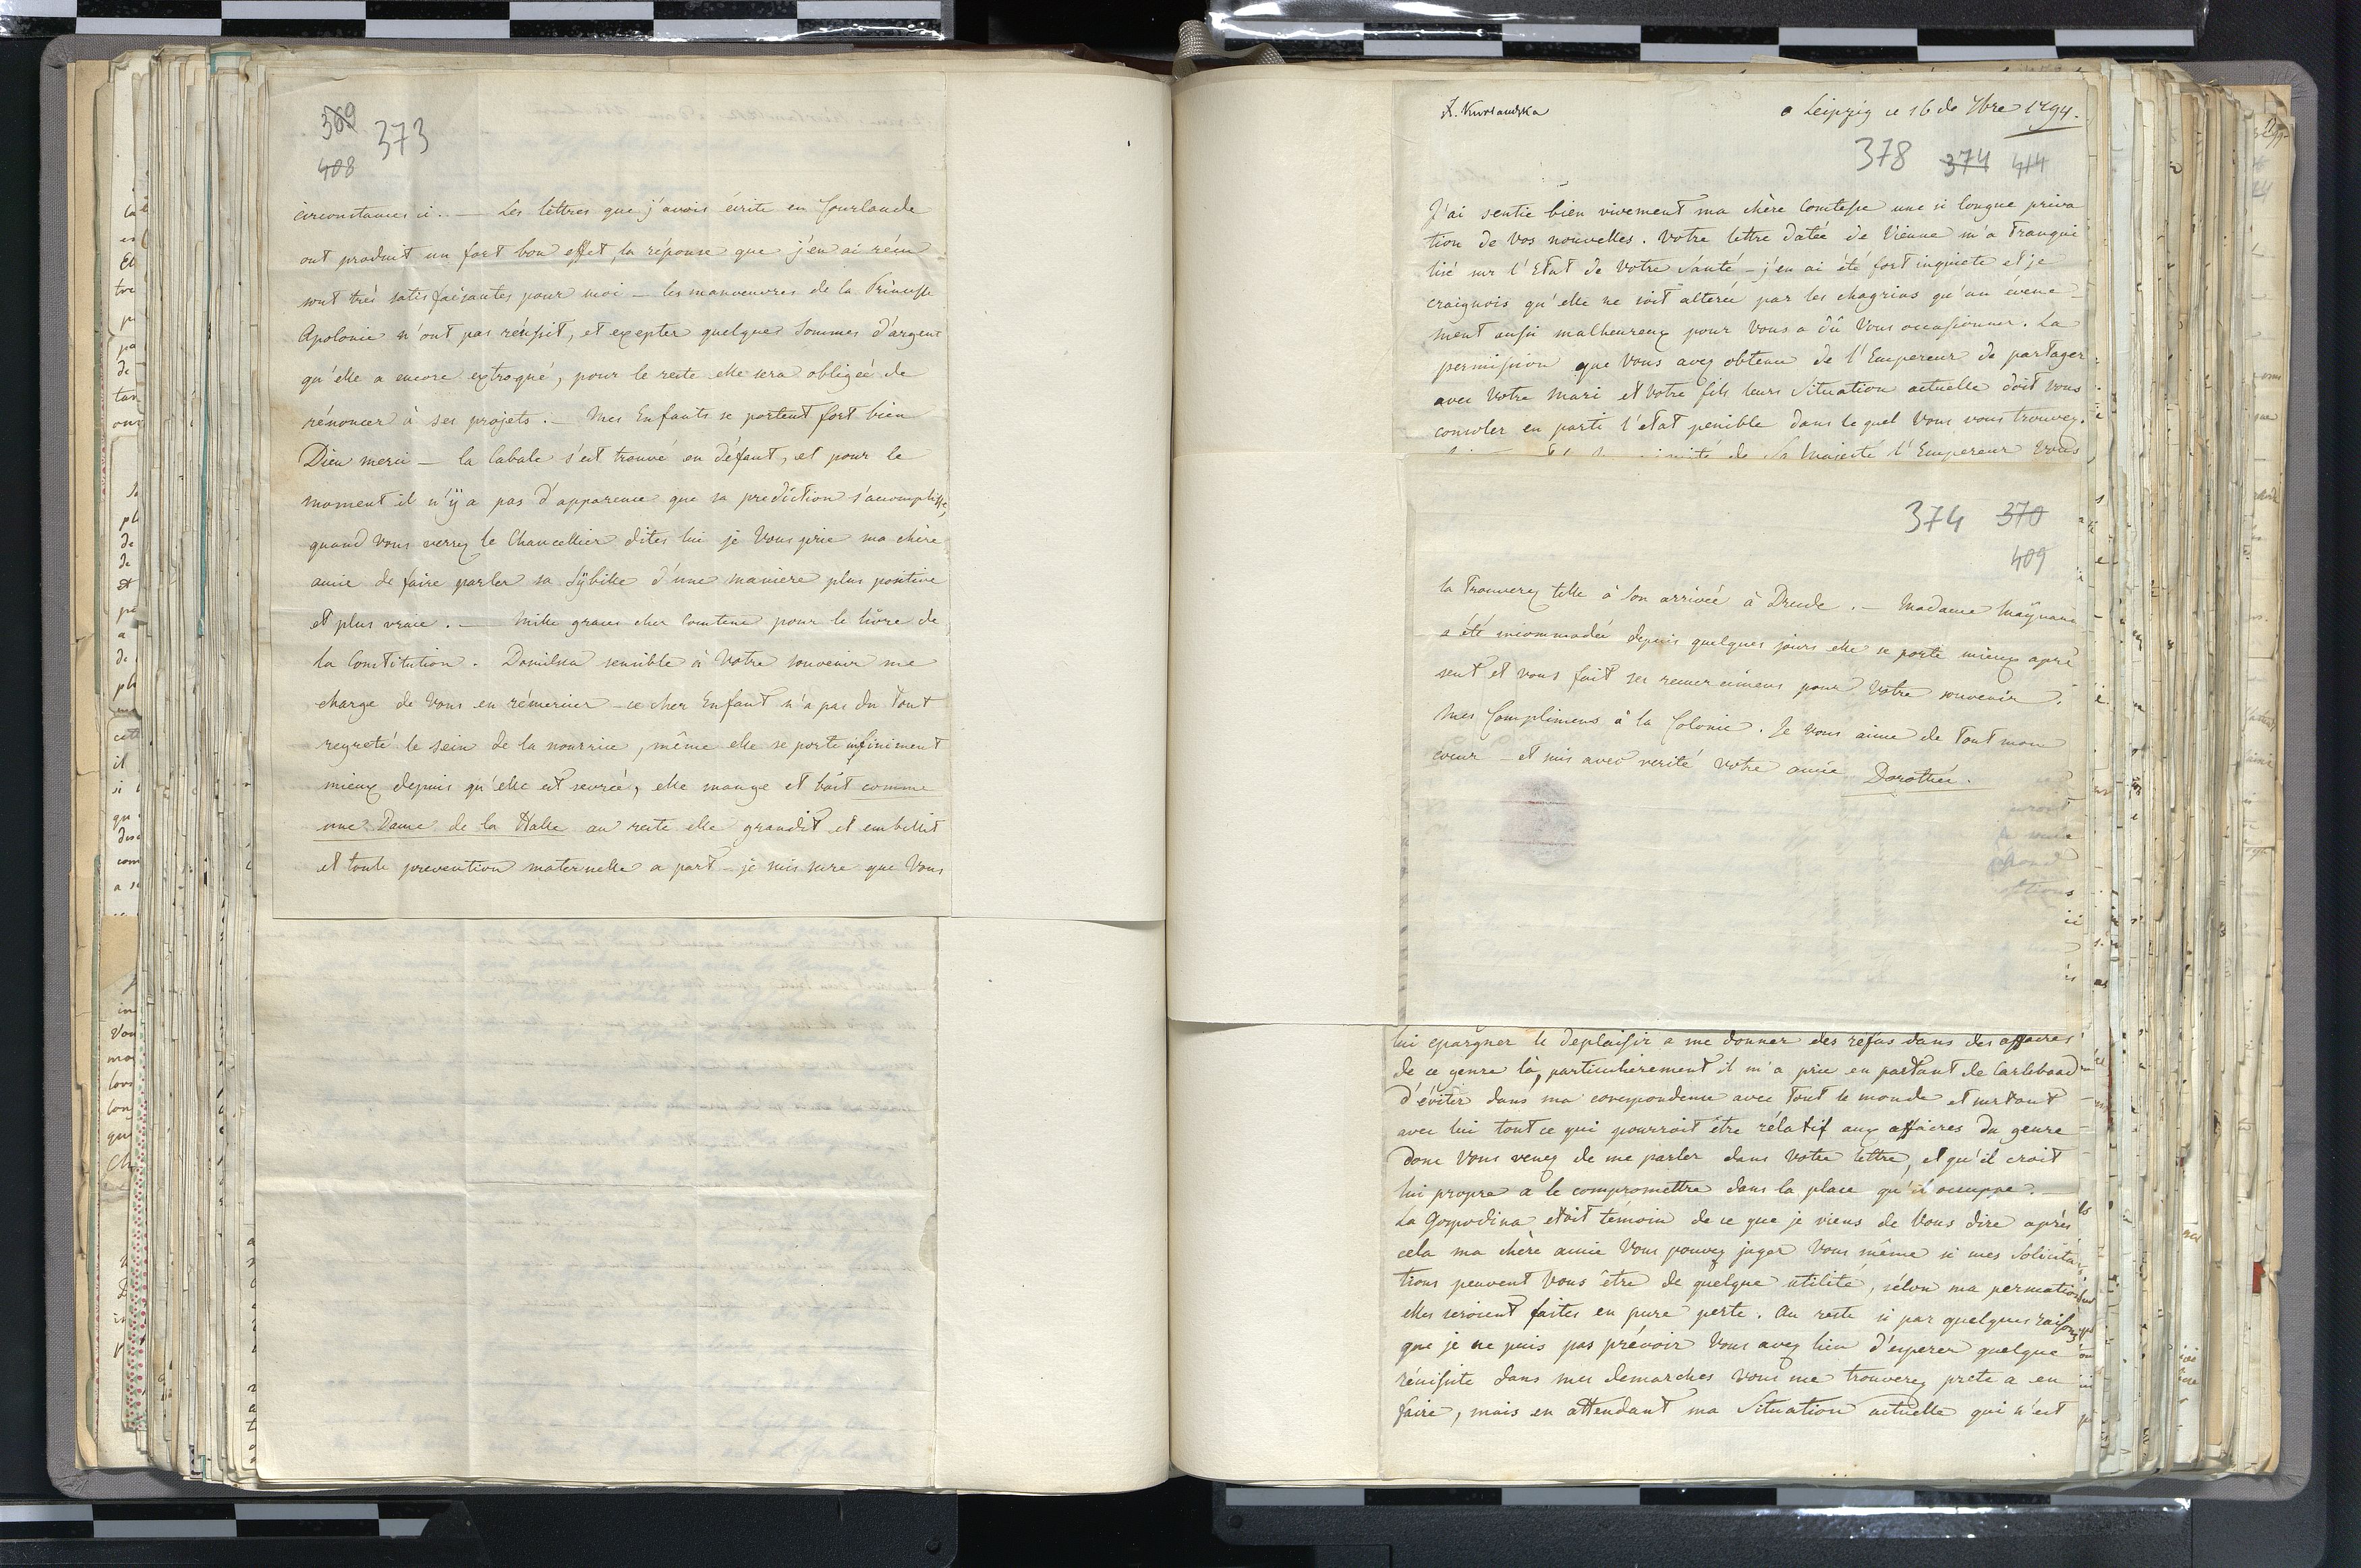 369
373
408
circonstances ci. — Les lettres que j'avois écrite en Courlande
ont produit un fort bon effet, la réponse que j'en ai réçu
sont très satisfaisantes pour moi — les manoeuvres de la Princesse
Apolonie n'ont pas réussit, et exepter quelques Sommes d'argent
qu'elle a encore extroqué, pour le reste elle sera obligée de
rénoncer à ses projets. — Mes Enfants se portent fort bien
Dieu merci — la Cabale s'est trouvé en défaut, et pour le
moment il n'ÿ a pas d'apparence que sa prediction s'accomplisse,
quand vous verrez le Chancellier dites lui je Vous prie ma chère
amie de faire parler sa Sÿbille d'une maniere plus positive
et plus vraie. — Mille graces cher Comtesse pour le livre de
la Constitution. sensible à Votre souvenir me
charge de Vous en rémercier — ce cher Enfant n'a pas du tout
regreté le sein de la nourrice, même elle se porte infiniment
mieux depuis qu'elle est sevrée, elle mange et boit comme
une Dame de la Halle au reste elle grandit et embellit
et toute prevention maternelle a part — je suis sure que Vous
X. Kurlandzka
a Leipzig ce 16 de 7bre 1794.
378 374 414
J'ai sentie bien vivement ma chère Comtesse une si longue priva
tion de Vos nouvelles. Votre lettre datée de Vienne m'a tranqui
lisé sur l'Etat de Votre Santé — j'en ai été fort inquiete et je
craignois qu'elle ne soit alterée par les chagrins qu'un evene
ment aussi malheureux pour Vous a dû Vous occasionner. La
permission que Vous avez obtenu de l'Empereur de partager
avec Votre Mari et Votre fils leurs Situation actuelle doit vous
consoler en parti l'etat penible dans le quel Vous vous trouvez.
de Sa Majesté l'Empereur Vous
374 370
409
la Trouverez telle à Son arrivée à Dresde. — Madame
a été incommodée depuis quelques jours elle se porte mieux apré
sent et vous fait ses remercimens pour Votre souvenir.
Mes Complimens à la Colonie. Je Vous aime de tout mon
coeur — et suis avec verité Votre amie Dorothée.
lui epargner le deplaisir a me donner des réfus dans des affaires
de ce genre là, particulierement il m'a prie en partant de Carlsbaad
d'éviter dans ma corespondence avec tout le monde et surtout
avec lui tout ce qui pourroit être rélatif aux affaires du genre
dont Vous venez de me parler dans Votre lettre, et qu'il croit
lui propre a le compromettre dans la place qu'il occuppe. —
La Gospodina etoit témoin de ce que je viens de Vous dire après
cela ma chère amie Vous pouvez juger Vous même si mes Solicita
tions peuvent Vous être de quelque utilité, sélon ma persuation
elles seroient faites en pure perte. Au reste si par quelques raisons
que je ne puis pas prévoir Vous avez lieu d'esperer quelque
réussite dans mes demarches Vous me trouverez prete a en
faire, mais en attendant ma Situation actuelle qui n'est